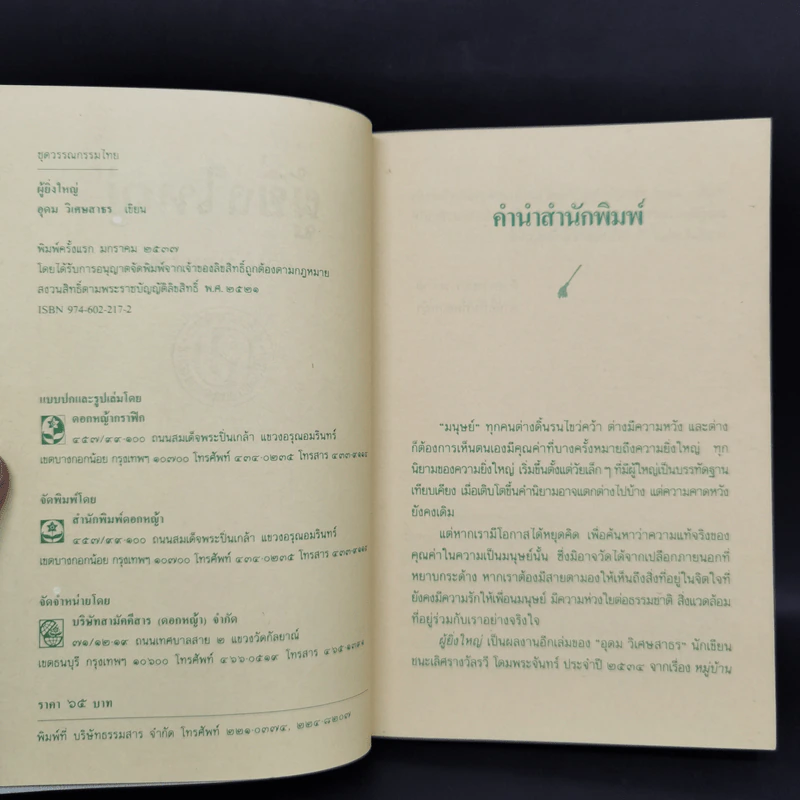 ชุดวรรณกรรมไทย
ผู้ยิ่งใหญ่
อุดม วิเศษสาธร เขียน
พิมพ์ครั้งแรก มกราคม ๒๕๓๗
โดยได้รับการอนุญาตจัดพิมพ์จากเจ้าของลิขสิทธิ์ถูกต้องตามกฎหมาย
สงวนสิทธิ์ตามพระราชบัญญัติลิขสิทธิ์ พ.ศ. ๒๕๒๑
ISBN 974-602-217-2
แบบปกและรูปเล่มโดย
ดอกหญ้ากราฟิก
๔๕๗/๙๙-๑๐๐ ถนนสมเด็จพระปิ่นเกล้า แขวงอรุณอมรินทร์
เขตบางกอกน้อย กรุงเทพฯ ๑๐๗๐๐ โทรศัพท์ ๔๓๔-๐๒๓๕ โทรสาร
จัดพิมพ์โดย
สำนักพิมพ์ดอกหญ้า
๔๕๗/๙๙-๑๐๐ ถนนสมเด็จพระปิ่นเกล้า แขวงอรุณอมรินทร์
เขตบางกอกน้อย กรุงเทพฯ ๑๐๗๐๐ โทรศัพท์ ๔๓๔-๐๒๓๕ โทรสาร
จัดจำหน่ายโดย
บริษัทสามัคคีสาร (ดอกหญ้า) จำกัด
๗๑/๑๒-๑๙ ถนนเทศบาลสาย ๒ แขวงวัดกัลยาณ์
เขตธนบุรี กรุงเทพฯ ๑๐๖๐๐ โทรศัพท์ ๔๖๖-๐๕๑๙ โทรสาร
ราคา ๖๕ บาท
พิมพ์ที่ บริษัทธรรมสาร จำกัด โทรศัพท์ ๒๒๑-๐๓๗๔, ๒๒๔-๘๒๐๗
คำนำสำนักพิมพ์
"มนุษย์" ทุกคนต่างดิ้นรนไขว่คว้า ต่างมีความหวัง และต่าง
ก็ต้องการเห็นตนเองมีคุณค่าที่บางครั้งหมายถึงความยิ่งใหญ่ ทุก
นิยามของความยิ่งใหญ่ เริ่มขึ้นตั้งแต่วัยเล็ก ๆ ที่มีผู้ใหญ่เป็นบรรทัดฐาน
เทียบเคียง เมื่อเติบโตขึ้นค่านิยามอาจแตกต่างไปบ้าง แต่ความคาดหวัง
ยังคงเดิม
แต่หากเรามีโอกาสได้หยุดคิด เพื่อค้นหาว่าความแท้จริงของ
คุณค่าในความเป็นมนุษย์นั้น ซึ่งมิอาจวัดได้จากเปลือกภายนอกที่
หยาบกระด้าง หากเราต้องมีสายตามองให้เห็นถึงสิ่งที่อยู่ในจิตใจที่
ยังคงมีความรักให้เพื่อนมนุษย์ มีความห่วงใยต่อธรรมชาติ สิ่งแวดล้อม
ที่อยู่ร่วมกับเราอย่างจริงใจ
ผู้ยิ่งใหญ่ เป็นผลงานอีกเล่มของ "อุดม วิเศษสาธร" นักเขียน
ชนะเลิศรางวัลรวี โดมพระจันทร์ ประจำปี ๒๕๓๔ จากเรื่อง หมู่บ้าน